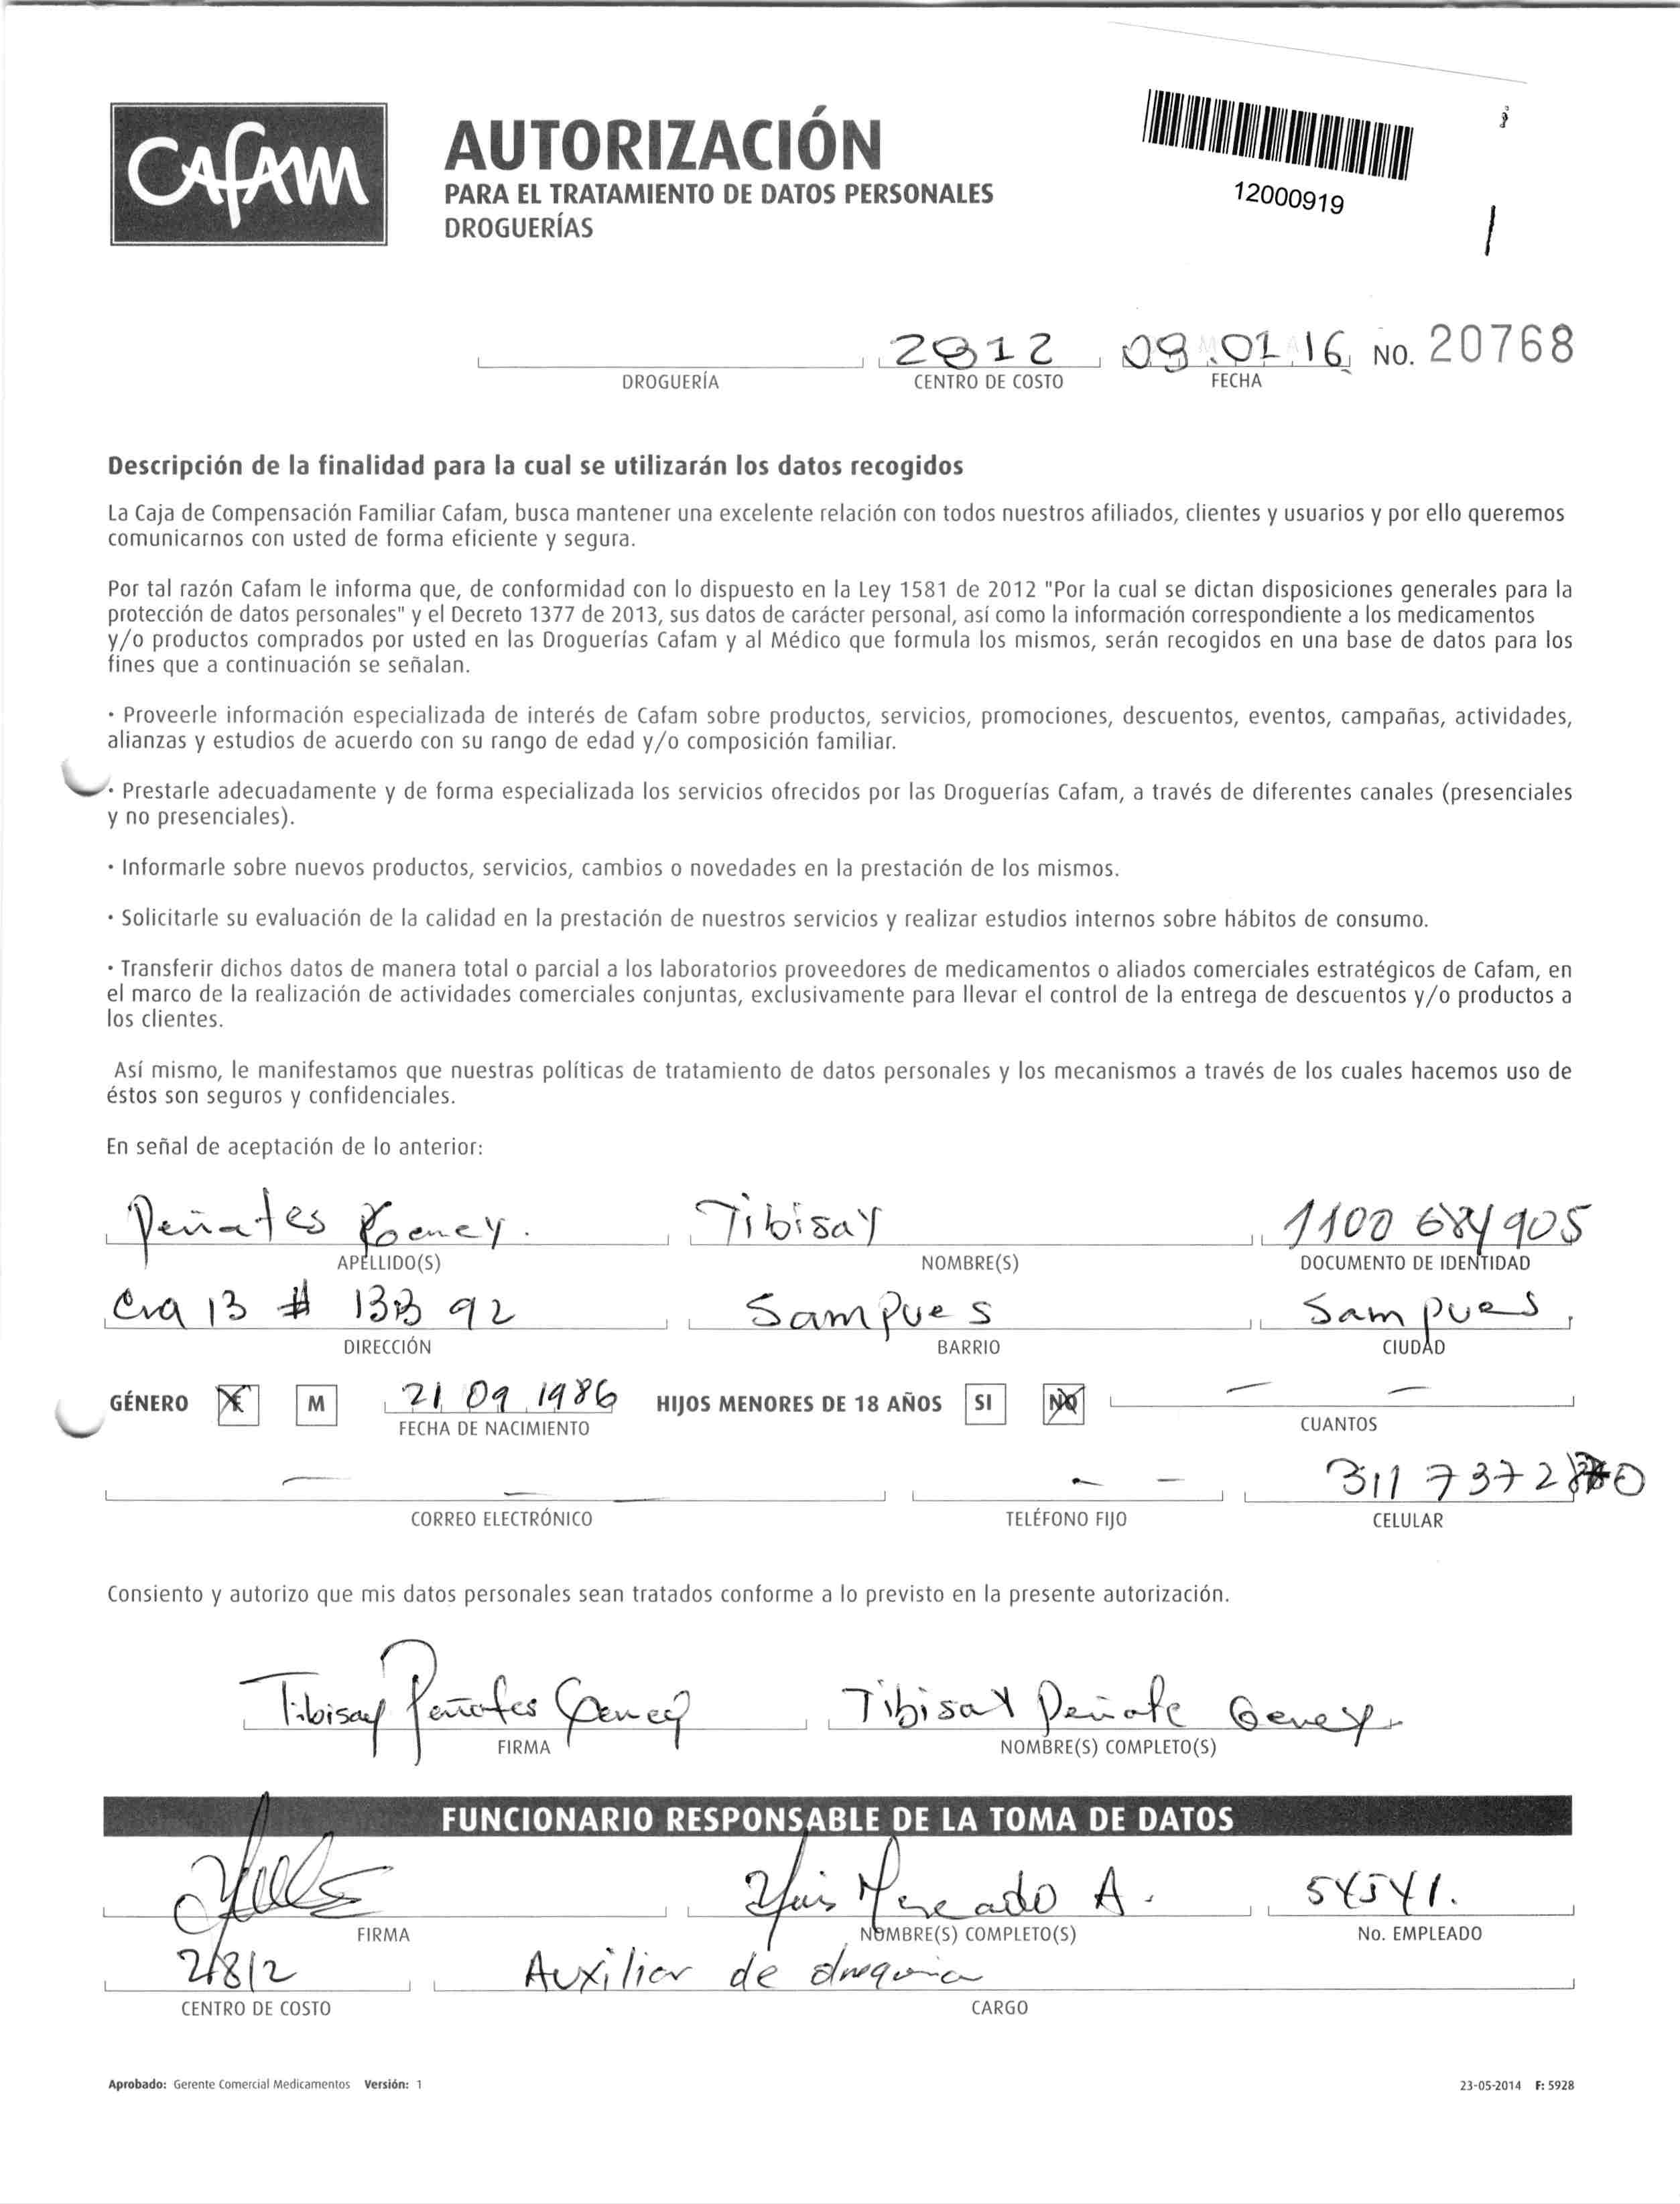 Cafam
AUTORIZACIÓN
PARA EL TRATAMIENTO DE DATOS PERSONALES
DROGUERÍAS
12000919
2812 09.01.16 NO. 20768
DROGUERÍA CENTRO DE COSTO FECHA
Descripción de la finalidad para la cual se utilizarán los datos recogidos
La Caja de Compensación Familiar Cafam, busca mantener una excelente relación con todos nuestros afiliados, clientes y usuarios y por ello queremos
comunicarnos con usted de forma eficiente y segura.
Por tal razón Cafam le informa que, de conformidad con lo dispuesto en la Ley 1581 de 2012 "Por la cual se dictan disposiciones generales para la
protección de datos personales" y el Decreto 1377 de 2013, sus datos de carácter personal, así como la información correspondiente a los medicamentos
y/o productos comprados por usted en las Droguerías Cafam y al Médico que formula los mismos, serán recogidos en una base de datos para los
fines que a continuación se señalan.
· Proveerle información especializada de interés de Cafam sobre productos, servicios, promociones, descuentos, eventos, campañas, actividades,
alianzas y estudios de acuerdo con su rango de edad y/o composición familiar.
· Prestarle adecuadamente y de forma especializada los servicios ofrecidos por las Droguerías Cafam, a través de diferentes canales (presenciales
y no presenciales).
· Informarle sobre nuevos productos, servicios, cambios o novedades en la prestación de los mismos.
· Solicitarle su evaluación de la calidad en la prestación de nuestros servicios y realizar estudios internos sobre hábitos de consumo.
· Transferir dichos datos de manera total o parcial a los laboratorios proveedores de medicamentos o aliados comerciales estratégicos de Cafam, en
el marco de la realización de actividades comerciales conjuntas, exclusivamente para llevar el control de la entrega de descuentos y/o productos a
los clientes.
Así mismo, le manifestamos que nuestras políticas de tratamiento de datos personales y los mecanismos a través de los cuales hacemos uso de
éstos son seguros y confidenciales.
En señal de aceptación de lo anterior:
Peñates Geney. Tibisay 1100 684 905
APELLIDO(S) NOMBRE(S) DOCUMENTO DE IDENTIDAD
Cra 13 # 13B 92 Sampues Sampues
DIRECCIÓN BARRIO CIUDAD
GÉNERO F M 21 09 1986 HIJOS MENORES DE 18 AÑOS SI NO
FECHA DE NACIMIENTO CUANTOS
311 7372
CORREO ELECTRÓNICO TELÉFONO FIJO CELULAR
Consiento y autorizo que mis datos personales sean tratados conforme a lo previsto en la presente autorización.
Tibisay Peñates Geney Tibisay Peñate Geney
FIRMA NOMBRE(S) COMPLETO(S)
FUNCIONARIO RESPONSABLE DE LA TOMA DE DATOS
Mercado A. 54541.
FIRMA NOMBRE(S) COMPLETO(S) No. EMPLEADO
2812 Auxiliar de drogueria
CENTRO DE COSTO CARGO
Aprobado: Gerente Comercial Medicamentos Versión: 1 23-05-2014 F: 5928